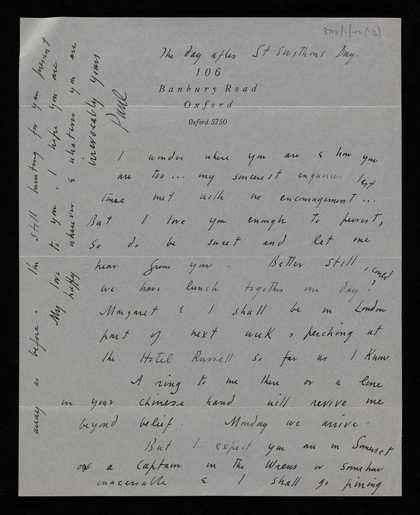 The day after St Swithins Day.
106
Banbury Road
Oxford
Oxford 5750
I wonder where you are & how you
are too ... my sincerest enquiries last
time met with no encouragement ...
But I love you enough to persist,
so do be sweet and let me
hear from you. Better still, could
we have lunch together one day?
Margaret & I shall be in London
part of next week, perching at
the Hotel Russell so far as I know
A ring to me there or a line
in your chinese hand will revive me
beyond belief. Monday we arrive.
But I expect you are in Somerset
or a Captain in the Wrens or somehow
inaccessible & I shall go pining
away as before. I'm still hunting for you present
My love to you. I hope you are
happy wherever & whatever you are
irrevocably yours
Paul